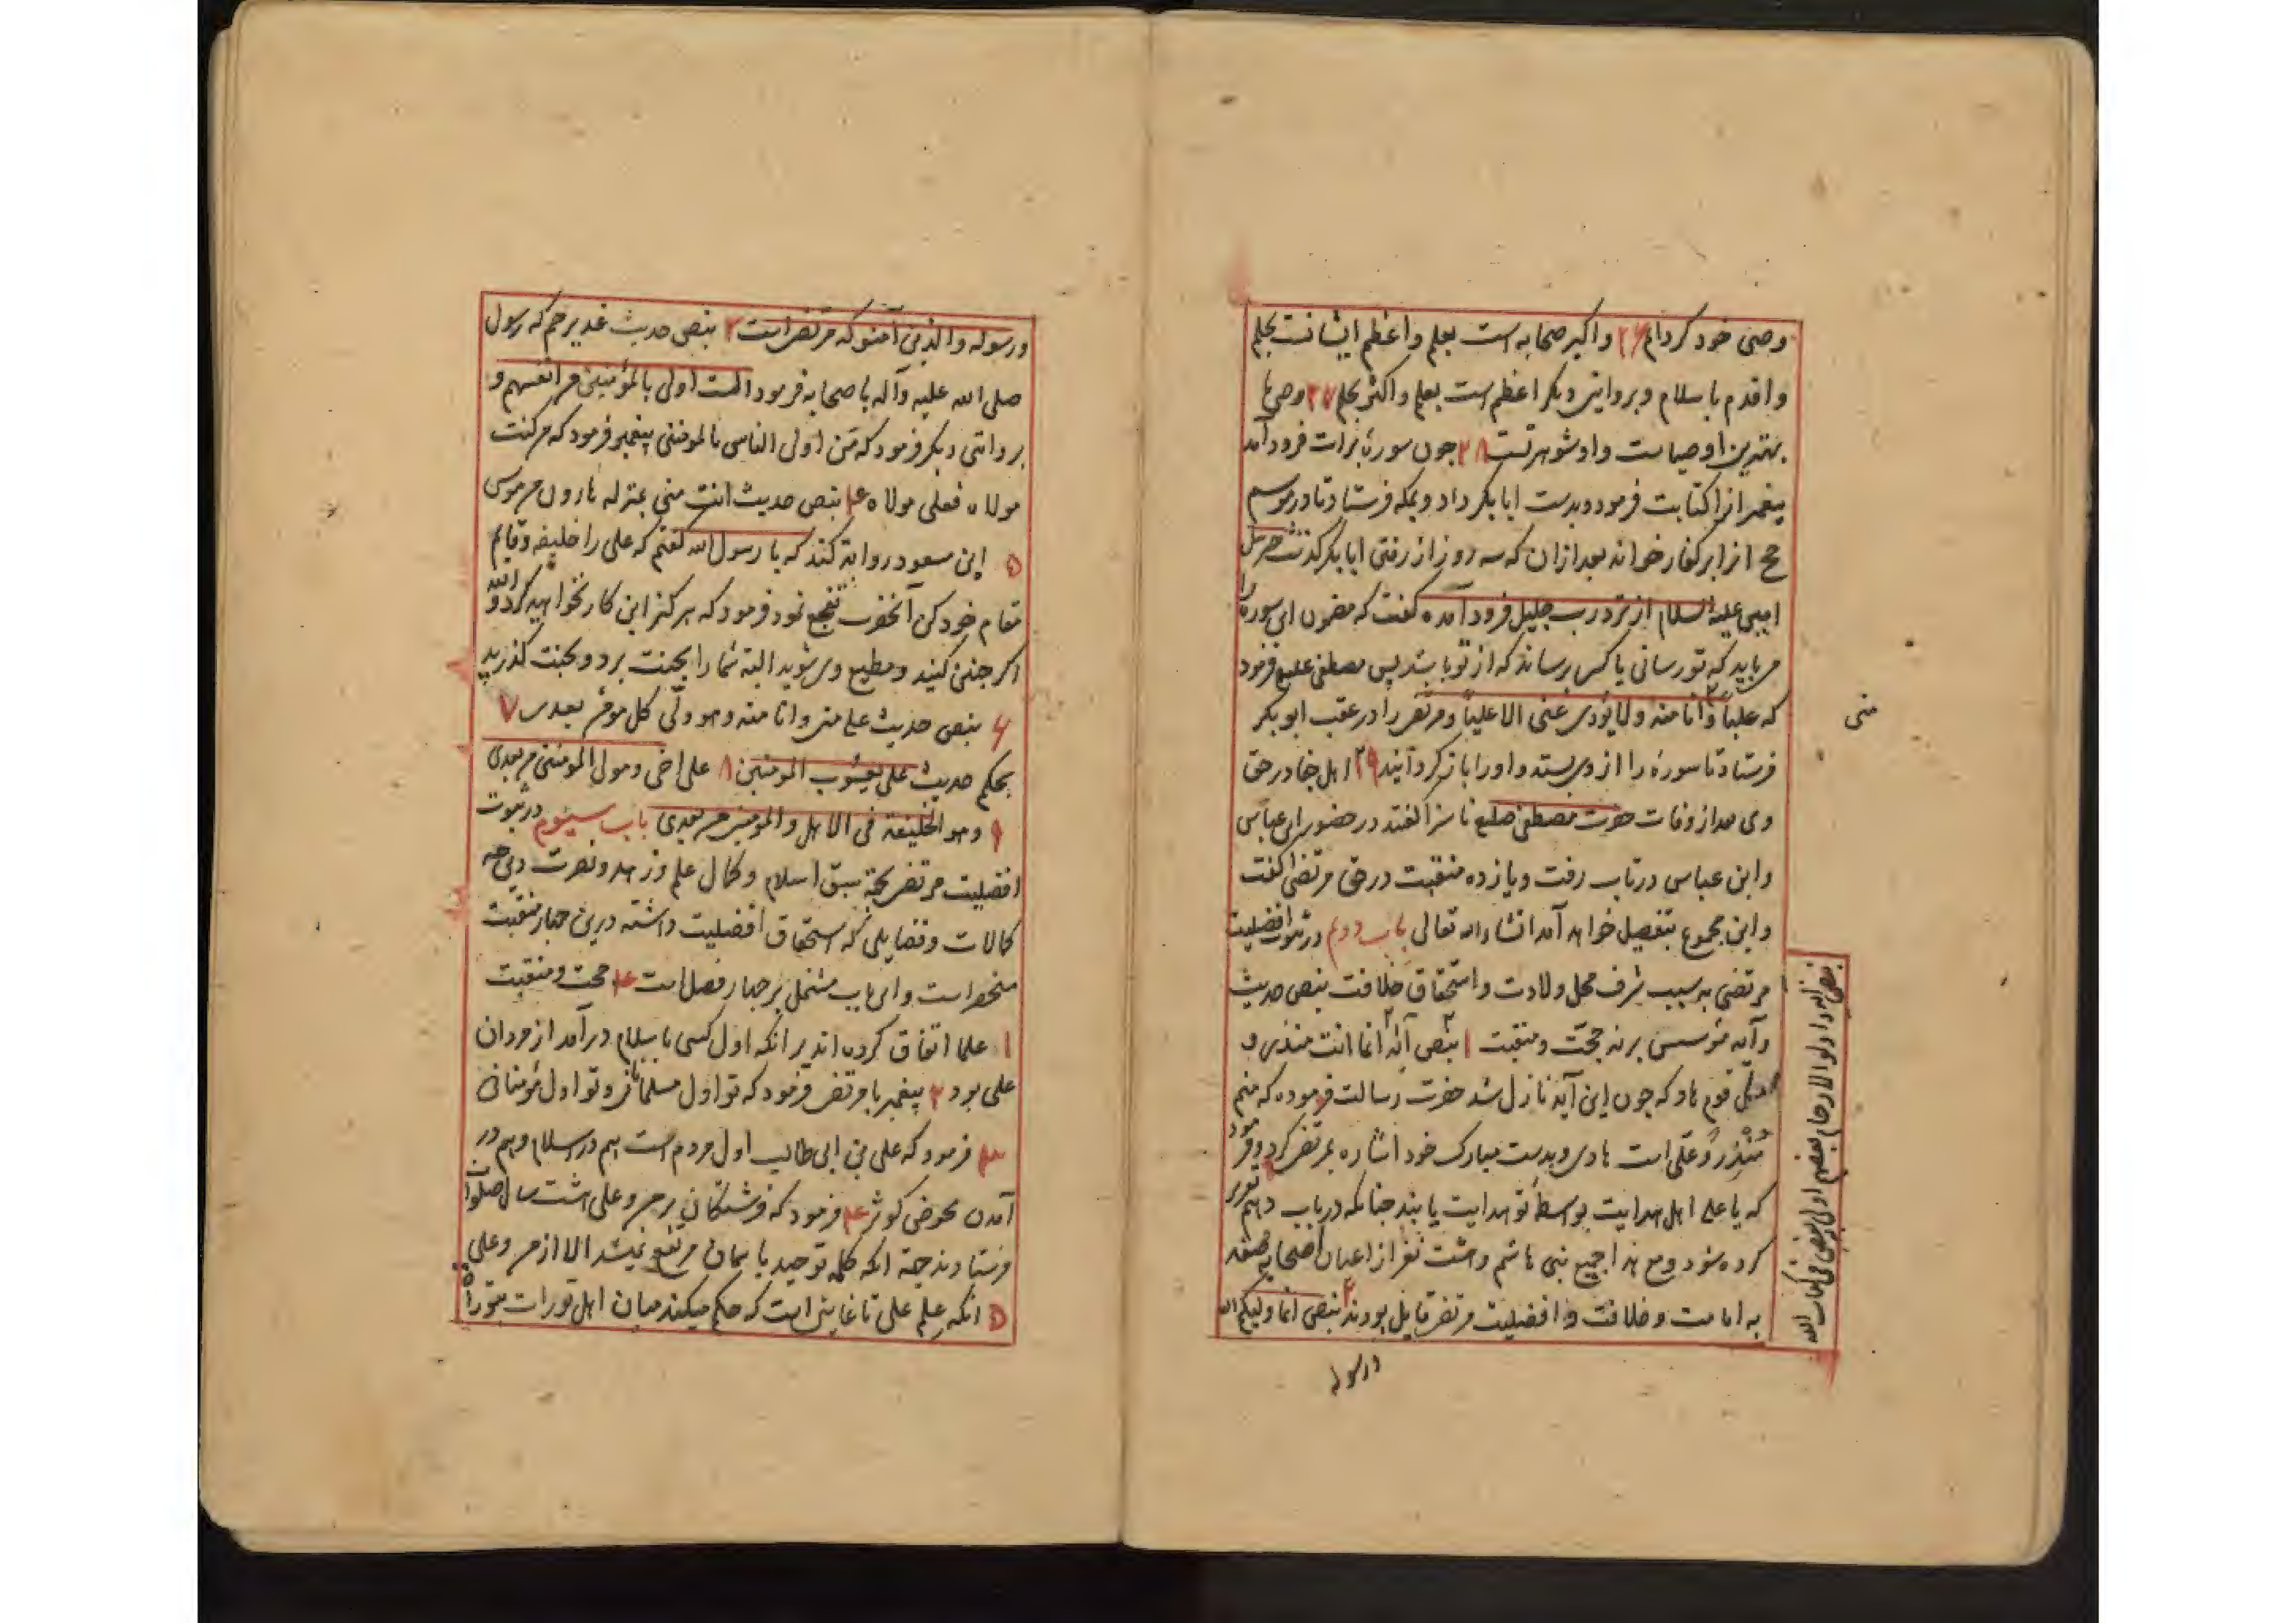 وصی خود کردام ۲۶ و اکبر صحابه است بعلم و اعظم ایشانت بحلم
و اقدم باسلام و بروایتی دیکر اعظم است بعلم و اکثر بحلم ۲۷ وصی ما
بهترین اوصیاست و او شوهر تست ۲۸ جون سورهٔ برات فرود آمد
پیغمبر انرا کتابت فرمود و بدست ابابکر داد و بمکه فرستاد تا در موسم
حج انرا بر کفار خواند بعد ازان که سه روز از رفتن ابابکر کذشت جبرئیل
امین علیه السلام از نزد رب جلیل فرود آمده کفت که مضمون این سوره را
می باید که تو رسانی یا کسی برساند که از تو باشد پس مصطفی صلعم فرمود
که علیاً و انا منه ولا یؤدی عنی الا علیاً و مرتضی را در عقب ابوبکر
منی
فرستاد تا سوره را از وی بستد و او را باز کردانید ۲۹ اهل جفا در حق
وی بعد از وفات حضرت مصطفی صلعم ناسزا کفتند در حضور ابن عباس
و ابن عباس در تاب رفت و یازده منقبت در حق مرتضی کفت
و این مجموع بتفصیل خواهد آمد انشاء الله تعالی باب دوم در ثبوت افضلیت
مرتضی به سبب شرف محل ولادت و استحقاق خلافت بنص حدیث
و آیه مؤسس بر نه حجت و منقبت ۱ بنص آیه انما انت منذر و
لکل قوم هاد که جون این آیه نازل شد حضرت رسالت فرموده که منم
مُنْذِر و علی است هادی و بدست مبارک خود اشاره بمرتضی کرد و فرمود
که یا علی اهل هدایت بواسطه تو هدایت یابند جنانکه در باب دهم تقریر
کرده شود و مع هذا جمیع بنی هاشم و هشت نفر از اعیان اصحاب صفه
به امامت و خلافت و افضلیت مرتضی قایل بودند ۲ بنص انما ولیکم الله
بنص آیه و اولوا الارحام بعضهم اولی ببعض فی کتاب الله
ورسوله
ورسوله والذین آمنو که مرتضی است ۳ بنص حدیث غدیر خم که رسول
صلی الله علیه وآله با صحابه فرمود الست اولی بالمؤمنین من انفسهم و
بروایتی دیکر فرمود که مَن اولی الناس بالمومنین پیغمبر فرمود که من کنت
مولاه فعلی مولاه ۴ بنص حدیث انت منی بمنزله هارون من موسی
۵ ابن مسعود روایة کند که یا رسول الله کفتم که علی را خلیفه و قایم
مقام خود کن آنحضرت تفجع نمود فرمود که هرکز این کار نخواهید کرد والله
اکر جنین کنید و مطیع وی شوید البته شما را بجنت برد و بجنت کذرید
۶ بنص حدیث علی منی وانا منه وهو ولّی کل مؤمن بعدی ۷
بحکم حدیث علی یعسُوب المومنین ۸ علی اخی ومولی المومنین من بعدی
۹ وهو الخلیفة فی الاهل والمومنین من بعدی باب سیئوم در ثبوت
افضلیت مرتضی بجهة سبق اسلام و کمال علم و زهد و نصرت دین
کمالات و فضایلی که استحقاق افضلیت داشته درین جهار منقبت
منحصر است و این باب مشتمل بر جهار فصل است ۱۴ حجت و منقبت
۱ علما اتفاق کرده اند بر انکه اول کسی باسلام درآمد از مردان
علی بود ۲ پیغمبر با مرتضی فرمود که تو اول مسلمانانی و تو اول مؤمنانی
۳ فرمود که علی بن ابی طالب اول مردم است هم در اسلام و هم در
آمدن بحوض کوثر ۴ فرمود که فرشتکان بر من و علی هشت سال صلوات
فرستادند جهة انکه کلمه توحید با سمان مرتفع نمیشد الا از من و علی
۵ انکه عِلم علی تا غایتی است که حکم میکند میان اهل تورات بتوراة